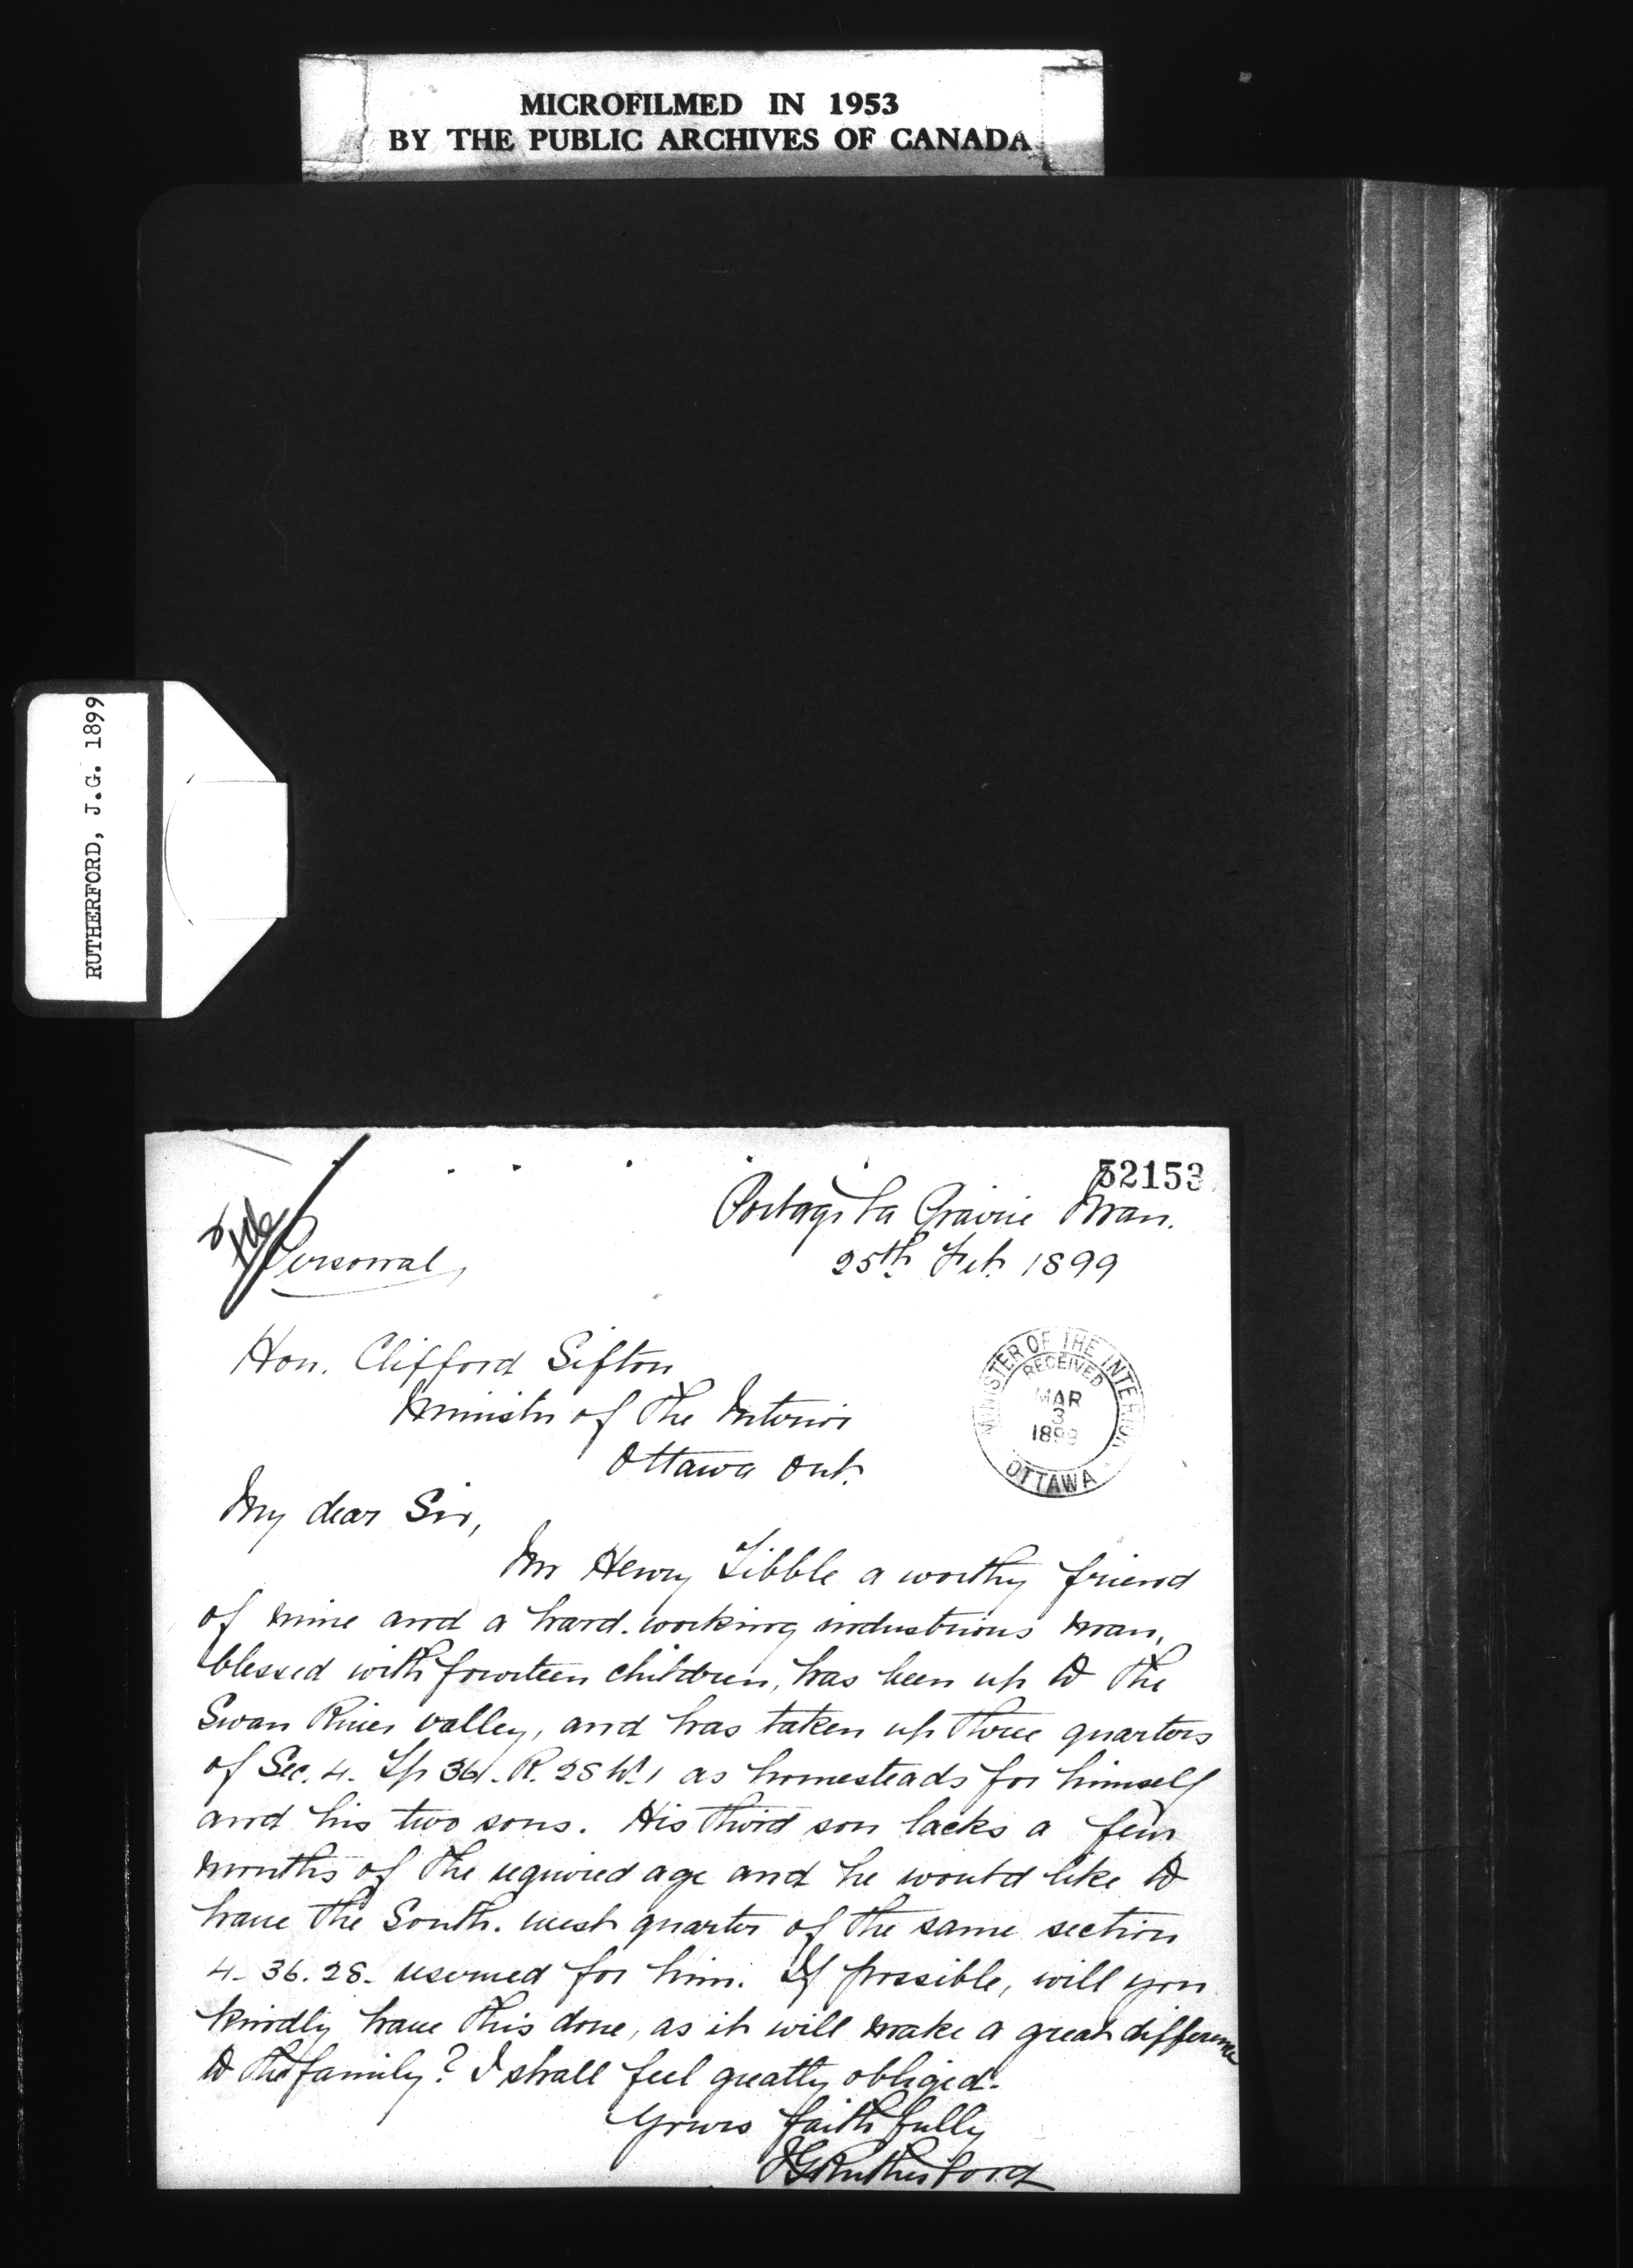 MICROFILMED IN 1953
BY THE PUBLIC ARCHIVES OF CANADA
RUTHERFORD, J.G. 1899
52153
Portage La Prairie Man.
25th Feb. 1899
File
Personal,
Hon. Clifford Sifton
Minister of the Interior
Ottawa Ont.
MINISTER OF THE INTERIOR
RECEIVED
MAR
3
1899
OTTAWA
My dear Sir,
Mr Henry Tibble a worthy friend
of mine and a hard-working industrious man,
blessed with fourteen children, has been up to the
Swan River valley, and has taken up three quarters
of Sec. 4. Tp 36. R. 28 W. 1 as homesteads for himself
and his two sons. His third son lacks a few
months of the required age and he would like to
have the South-west quarter of the same section
4. 36. 28. reserved for him. If possible, will you
kindly have this done, as it will make a great difference
to the family? I shall feel greatly obliged.
Yours faithfully
JGRutherford